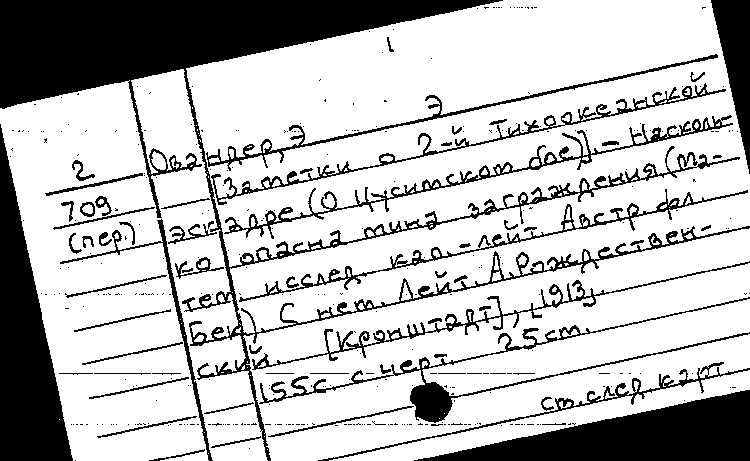 1
Овандер, Э Э
2
709.
(пер.)
[Заметки о 2-й Тихоокеанской
эскадре. (О Цусимском бое)]. - Насколь-
ко опасна мина заграждения (Ма-
тем. исслед. кап.-лейт. Австр. фл.
Бек). С нем. Лейт. А. Рождествен-
ский. [Кронштадт], [1913].
155с. с черт. 25см.
см. след карт.